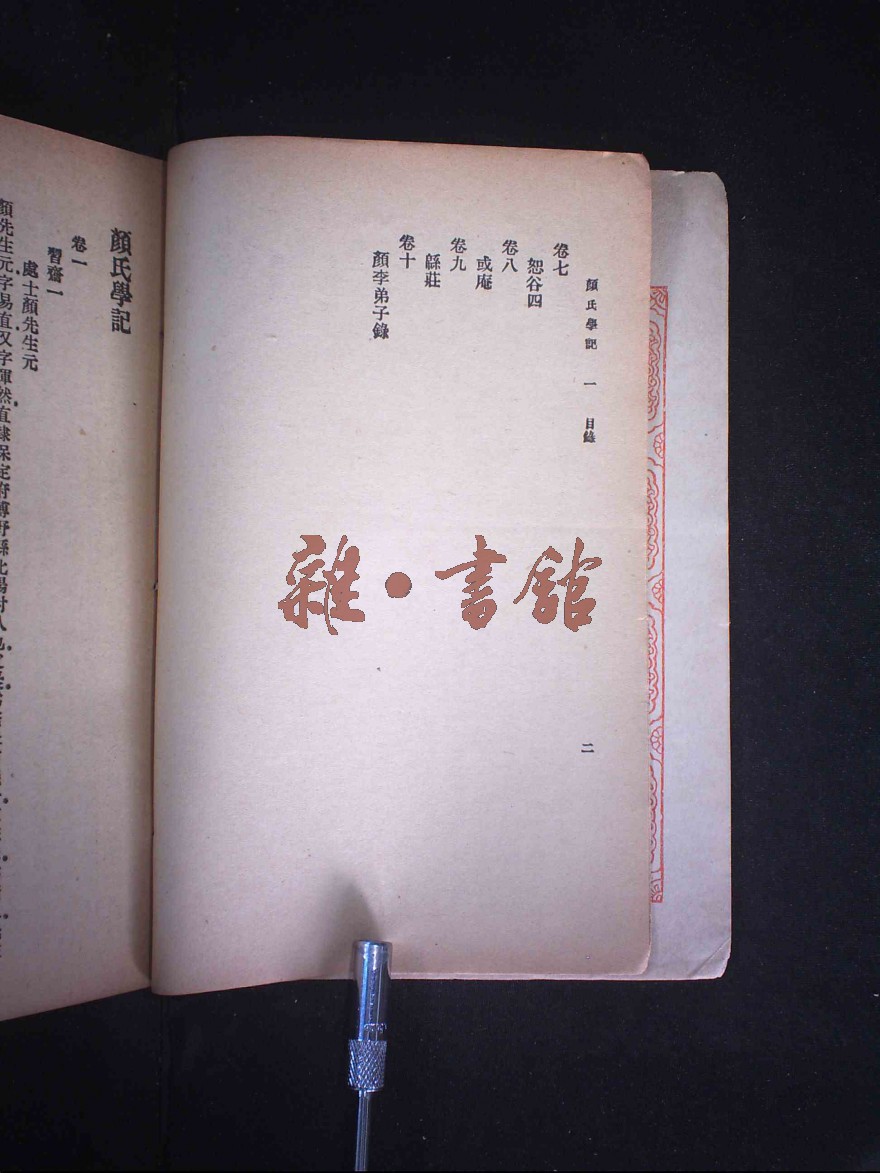 顏氏學記 一 目錄
二
卷七
恕谷四
卷八
或庵
卷九
緜莊
卷十
顏李弟子錄
雜·書館
顏氏學記
卷一
習齋一
處士顏先生元
顏先生元字易直又字渾然直隸保定府博野縣北楊村人